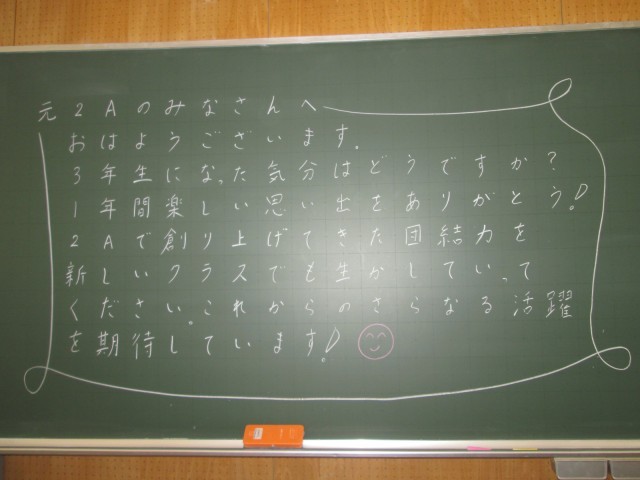 元2Aのみなさんへ
おはようございます。
3年生になった気分はどうですか?
1年間楽しい思い出をありがとう!
2Aで創り上げてきた団結力を
新しいクラスでも生かしていって
ください。これからのさらなる活躍
を期待しています!